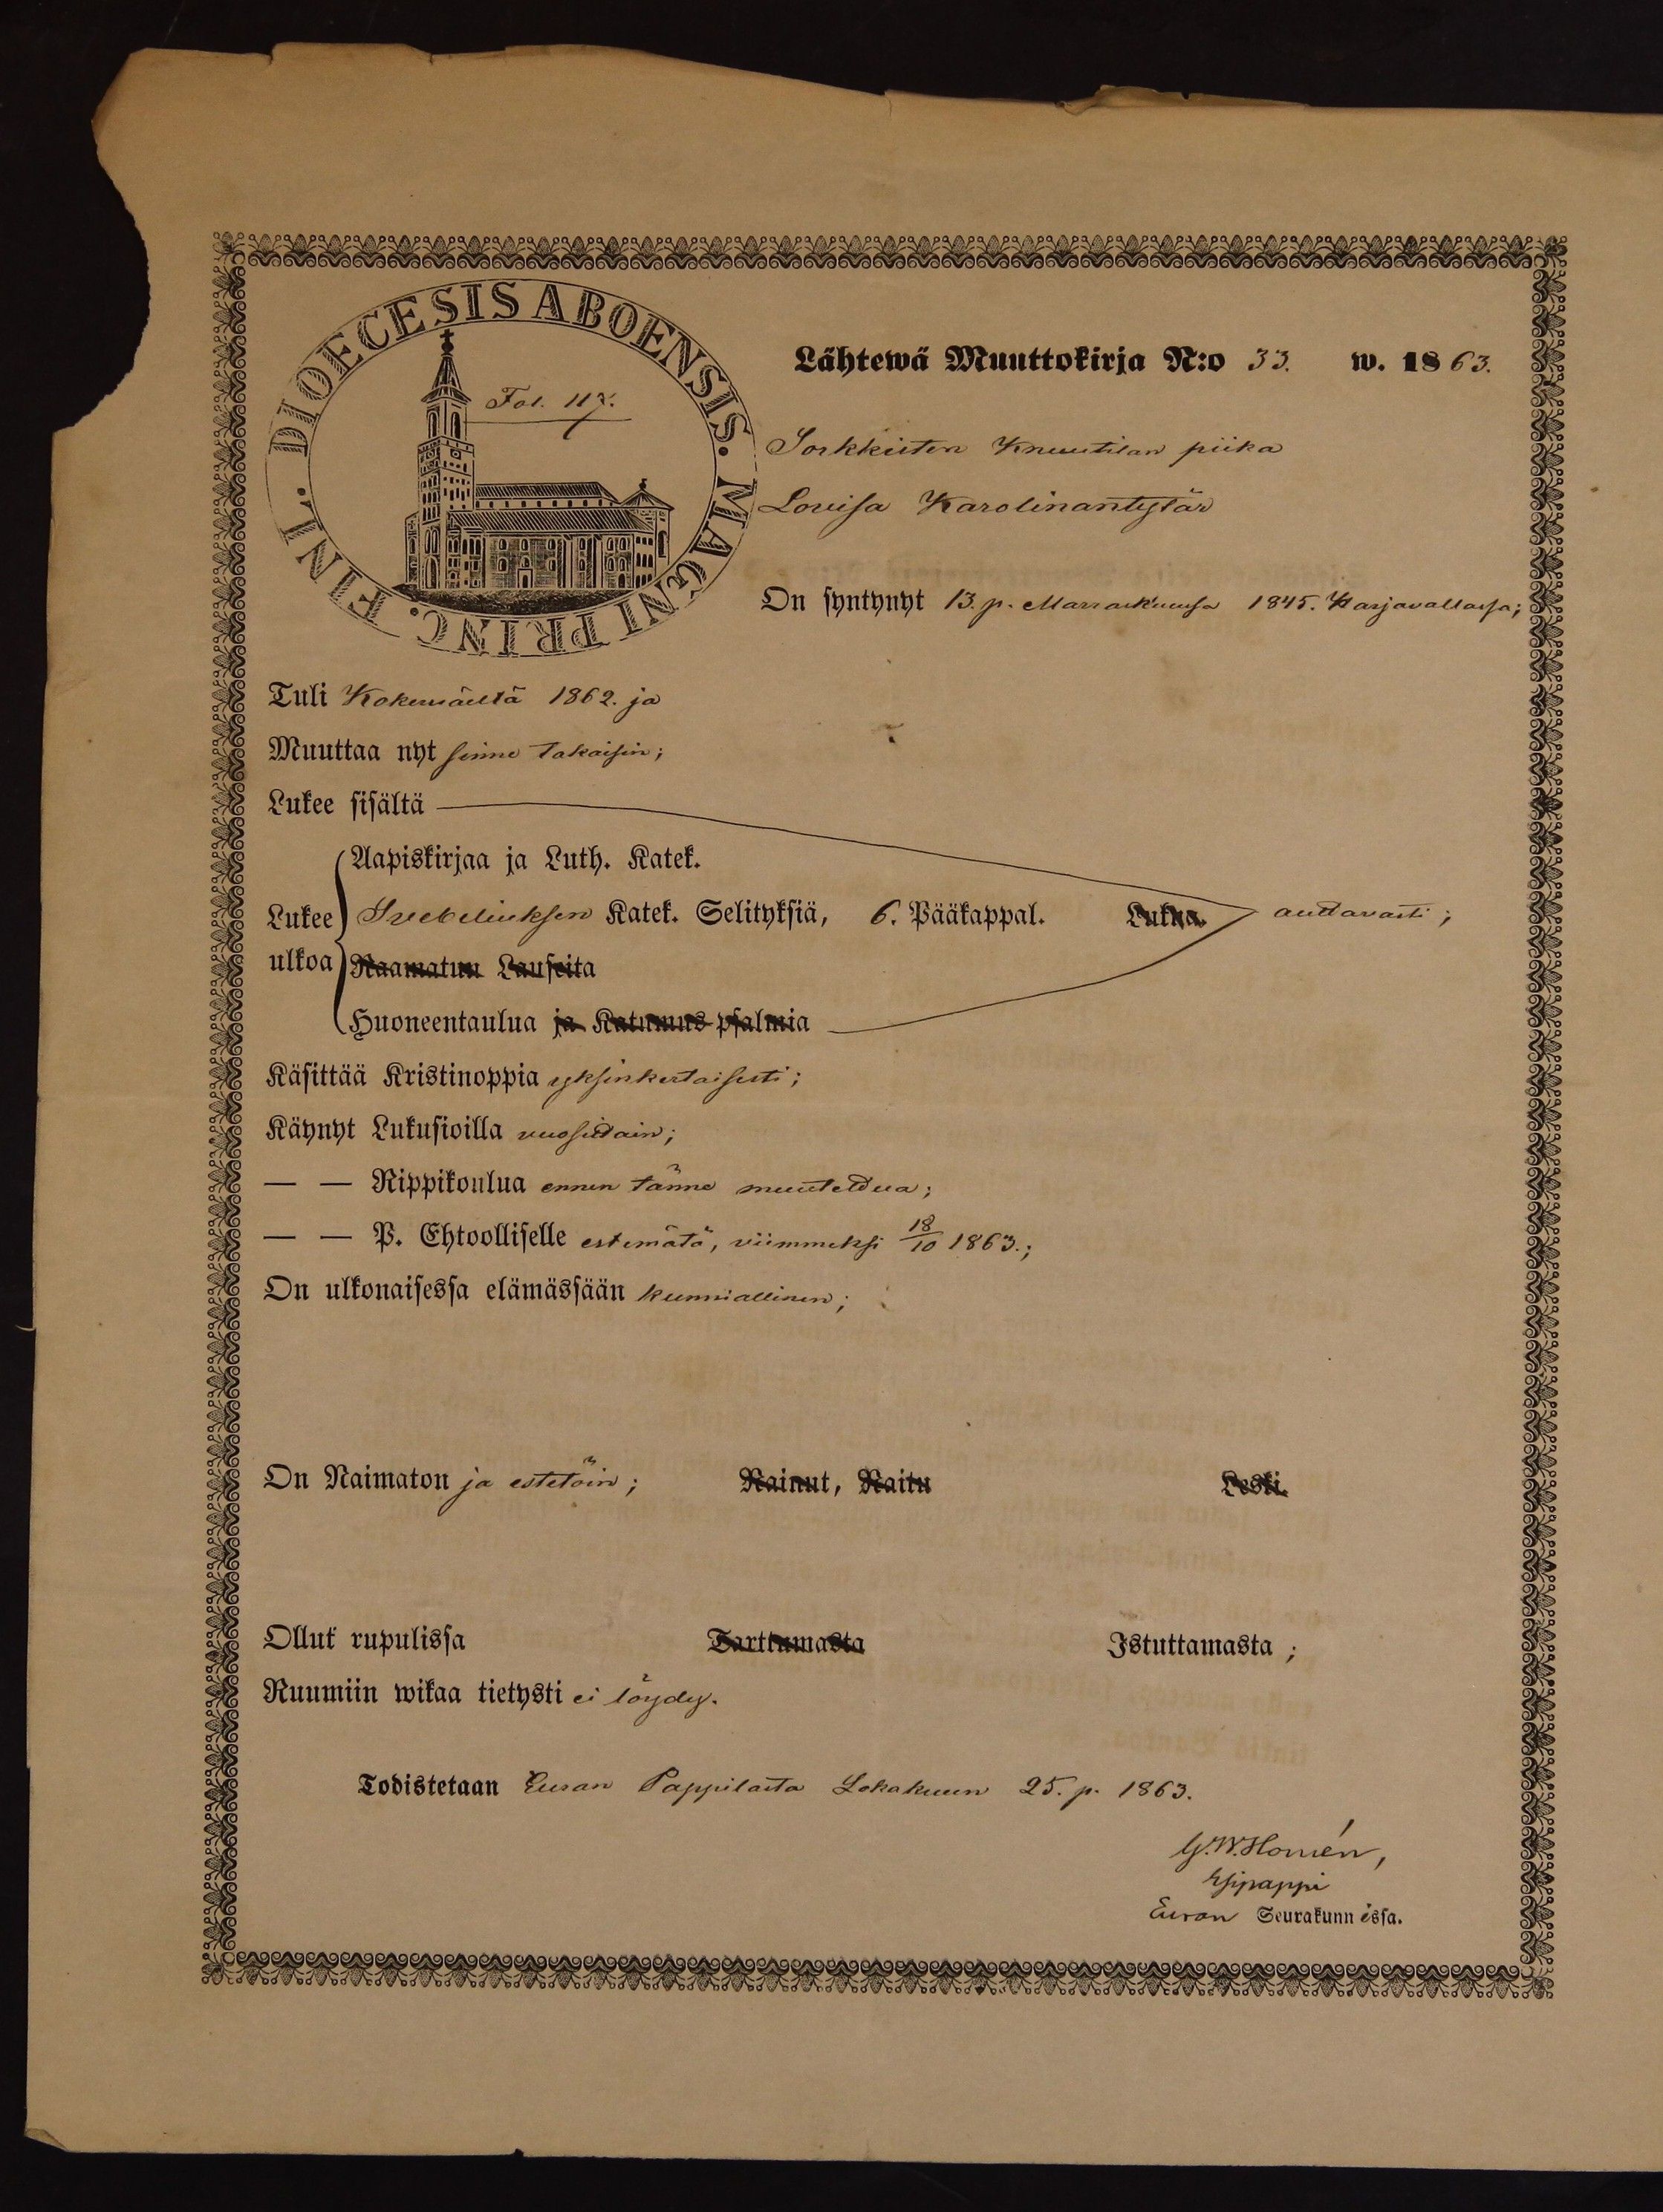 DIOECESIS ABOENSIS. MAGNI PRINC. FINL.
Fol. 117.
Lähtewä Muuttokirja N:o 33. w. 1863.
Sorkkisten Knuutilan piika
Lovisa Karolinantytär
On syntynyt 13. p. Marraskuussa 1845. Harjavallassa;
Tuli Kokemäeltä 1862. ja
Muuttaa nyt sinne takaisin;
Lukee sisältä
Aapiskirjaa ja Luth. Katek.
Lukee ulkoa Svebeliuksen Katek. Selityksiä, 6. Pääkappal. Lukua. auttavasti;
Raamatun Lauseita
Huoneentaulua ja Katumus psalmia
Käsittää Kristinoppia yksinkertaisesti;
Käynyt Lukusioilla vuosittain;
— — Rippikoulua ennen tänne muutettua;
— — P. Ehtoolliselle estemätä, viimmeksi 18/10 1863.;
On ulkonaisessa elämässään kunniallinen;
On Naimaton ja estetöin; Nainut, Naitu Leski.
Ollut rupulissa Tarttumasta Istuttamasta;
Ruumiin wikaa tietysti ei löydy.
Todistetaan Euran Pappilasta Lokakuun 25. p. 1863.
G. W. Homén,
Esipappi
Euran Seurakunnissa.